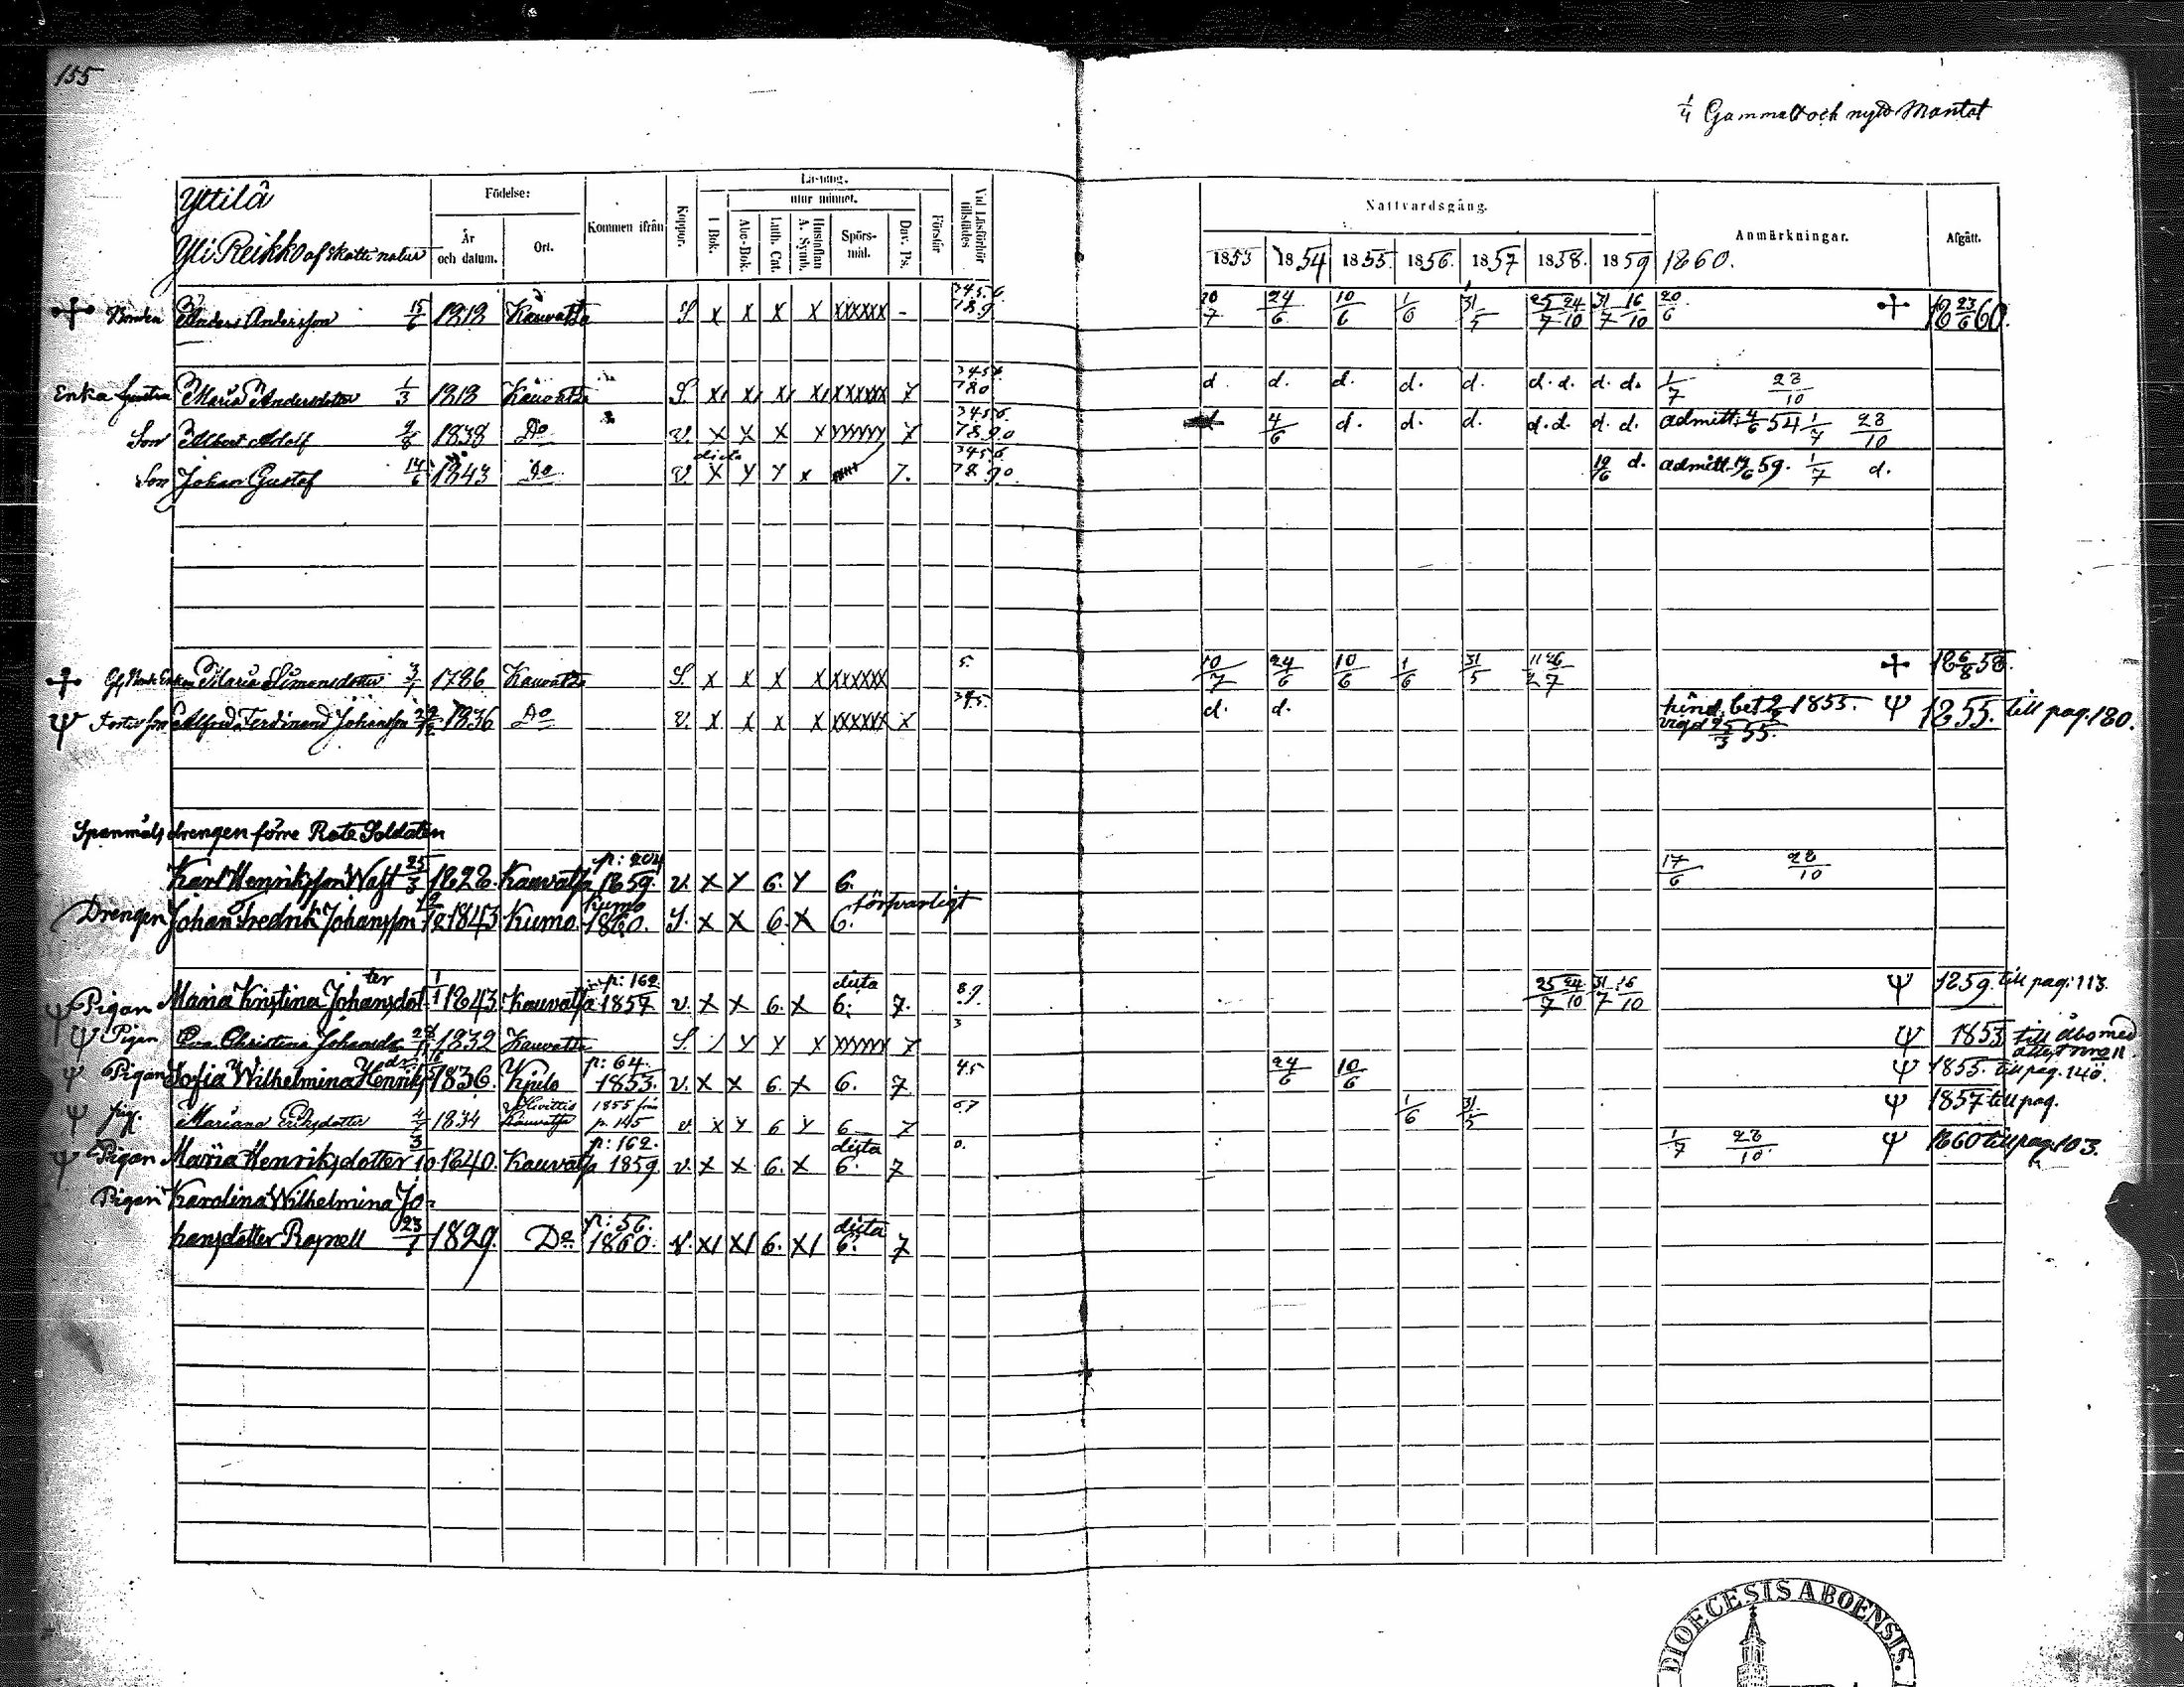 155
1/4 Gammalt och nytt Mantal
Yttilâ
Yli Reikko af skatte natur
Födelse:
År och datum.
Ort.
Kommen ifrån
Koppor.
Läsning.
I Bok.
utur minnet.
Abc-Bok.
Luth. Cat.
Hustaflan A. Symb.
Spörsmål.
Dav. Ps.
Förstår
Vid Läsförhör tillstädes
Nattvardsgång.
1853 1854 1855. 1856. 1857 1858. 1859 1860.
Anmärkningar.
Afgått.
Bonden Anders Andersson 15/6 1818 Kauvatsa S. x x x x xxxxxx - 20/7 24/6 10/6 1/6 31/5 25/7 24/10 31/7 16/10 20/6 18 23/6 60.
Enka hustru Maria Andersdotter 1/3 1818 Kauvatsa S. x x x x xxxxxx 7 d. d. d. d. d. d. d. d. d. 1/7 28/10
Son Albert Adolf 9/8 1838 Do v. x x x x 7 4/6 d. d. d. d. d. d. d. admitt. 4/6 54 1/7 28/10
Son Johan Gustaf 14/6 1843 Do v. x y y x 7. 19/6 d. admitt. 19/6 59. 1/7 d.
Maria Simonsdotter 3/7 1786 Kauvatsa S. x x x x xxxxxx 5. 10/7 24/6 10/6 1/6 31/5 11/2 26/7 18 6/8 58.
Foster son Alfred Ferdinand Johansson 1836 Do v. x x x x xxxxxx x 345. d. d. hind. bet. 1855. Ψ 1855. till pag. 180.
vigd 25/3 55.
Spanmåls drengen förre Rote Soldaten
Karl Henriksson Wast 25/3 1828. Kauvatsa p: 204 1859. v. x y 6. y 6. 17/6 28/10
Drengen Johan Fredrik Johansson 1843 Kumo. Kumo 1860. S. x x 6. x 6. försvarligt
Ψ Pigan Maria Kristina Johansdotter 1/1 1843. Kauvatsa p: 162 1857 v. x x 6. x dista 6. 7. 8.9 25/7 24/10 31/7 16/10 Ψ 1859 till pag: 113.
Ψ Pigan Eva Christina Johansdr 1832 Kauvatsa S. / y y x 7 3 Ψ 1853 till Åbo med attest
Ψ Pigan Sofia Wilhelmina Henriksdr 1836. Kjulo p: 64. 1853. v. x x 6. x 6. 7 45 24/6 10/6 Ψ 1855. till pag. 140.
Ψ Pig. Mariana Eriksdotter 4/7 1834 Kauvatsa 1855 från p. 145 v. x y 6 y 6 7 6.7 1/6 31/5 Ψ 1857 till pag.
Ψ Pigan Maria Henriksdotter 3/10 1840. Kauvatsa p: 162. 1859 v. x x 6. x dista 6. 7 0. 1/7 28/10 Ψ 1860 till pag. 103.
Pigan Karolina Wilhelmina Jo-
hansdotter Rosnell 23/1 1829. Do p: 56. 1860. v. x/ x/ 6. x/ dista 6. 7
DIOECESIS ABOENSIS.